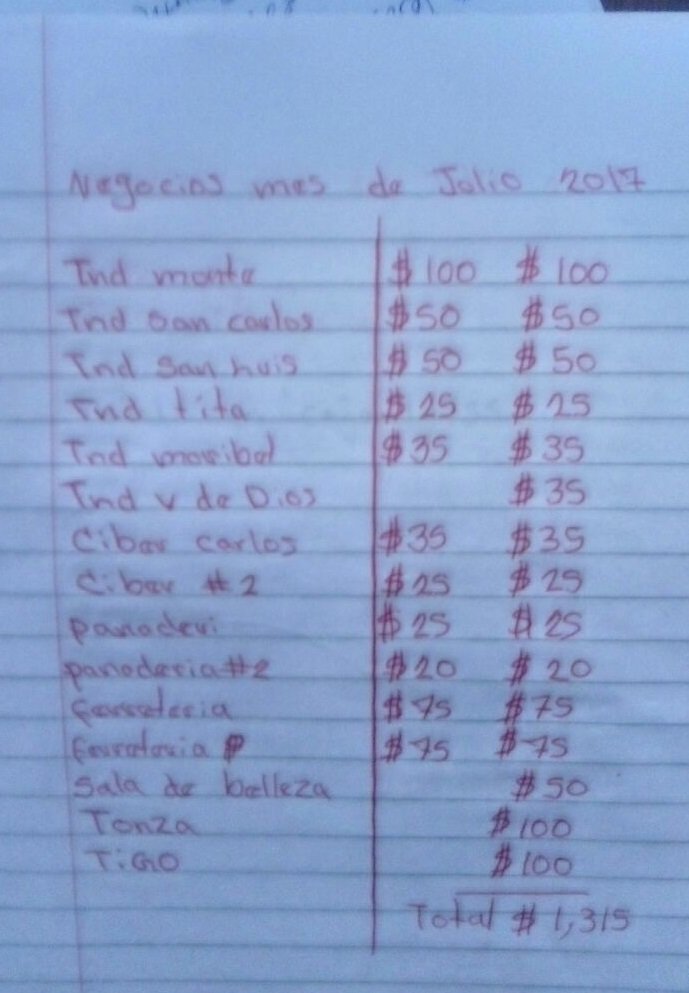 Negocios mes de Julio 2017
Tnd monte $100 $100
Tnd san carlos $50 $50
Tnd san Luis $50 $50
Tnd tita $25 $25
Tnd maribel $35 $35
Tnd v de Dios $35
Ciber carlos $35 $35
Ciber #2 $25 $25
panaderi $25 $25
panaderia #2 $20 $20
ferreteria $75 $75
ferreteria P $75 $75
Sala de belleza $50
Tonza $100
TiGO $100
Total $1,315